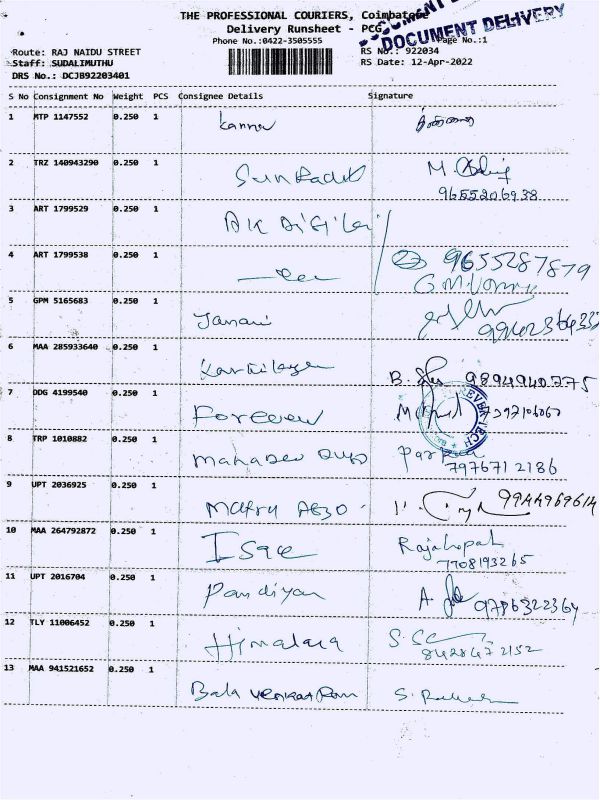 THE PROFESSIONAL COURIERS, Coimbatore
DOCUMENT DELIVERY
Delivery Runsheet - PCG
Phone No.:0422-3505555
Page No.:1
Route: RAJ NAIDU STREET
RS No.: 922034
Staff: SUDALIMUTHU
RS Date: 12-Apr-2022
DRS No.: DCJB92203401
S No Consignment No Weight PCS Consignee Details Signature
1 MTP 1147552 0.250 1 Kannan
2 TRZ 140943290 0.250 1 M.
9655206938
3 ART 1799529 0.250 1
4 ART 1799538 0.250 1 9655287879
5 GPM 5165683 0.250 1 Janani
6 MAA 285933640 0.250 1 B. 9894940775
7 DDG 4199540 0.250 1 Forever
8 TRP 1010882 0.250 1 Mahadev
7976712186
9 UPT 2036925 0.250 1 Matru 9944969614
10 MAA 264792872 0.250 1 Rajagopal
7708193265
11 UPT 2016704 0.250 1 Pandiyan A. 9786322364
12 TLY 11006452 0.250 1 Himalaia
8428472152
13 MAA 941521652 0.250 1 Bala Venkat Ram S.